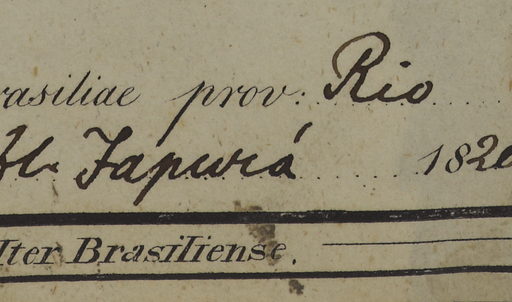 rasiliae prov. Rio
Japurá 182
Iter Brasiliense.